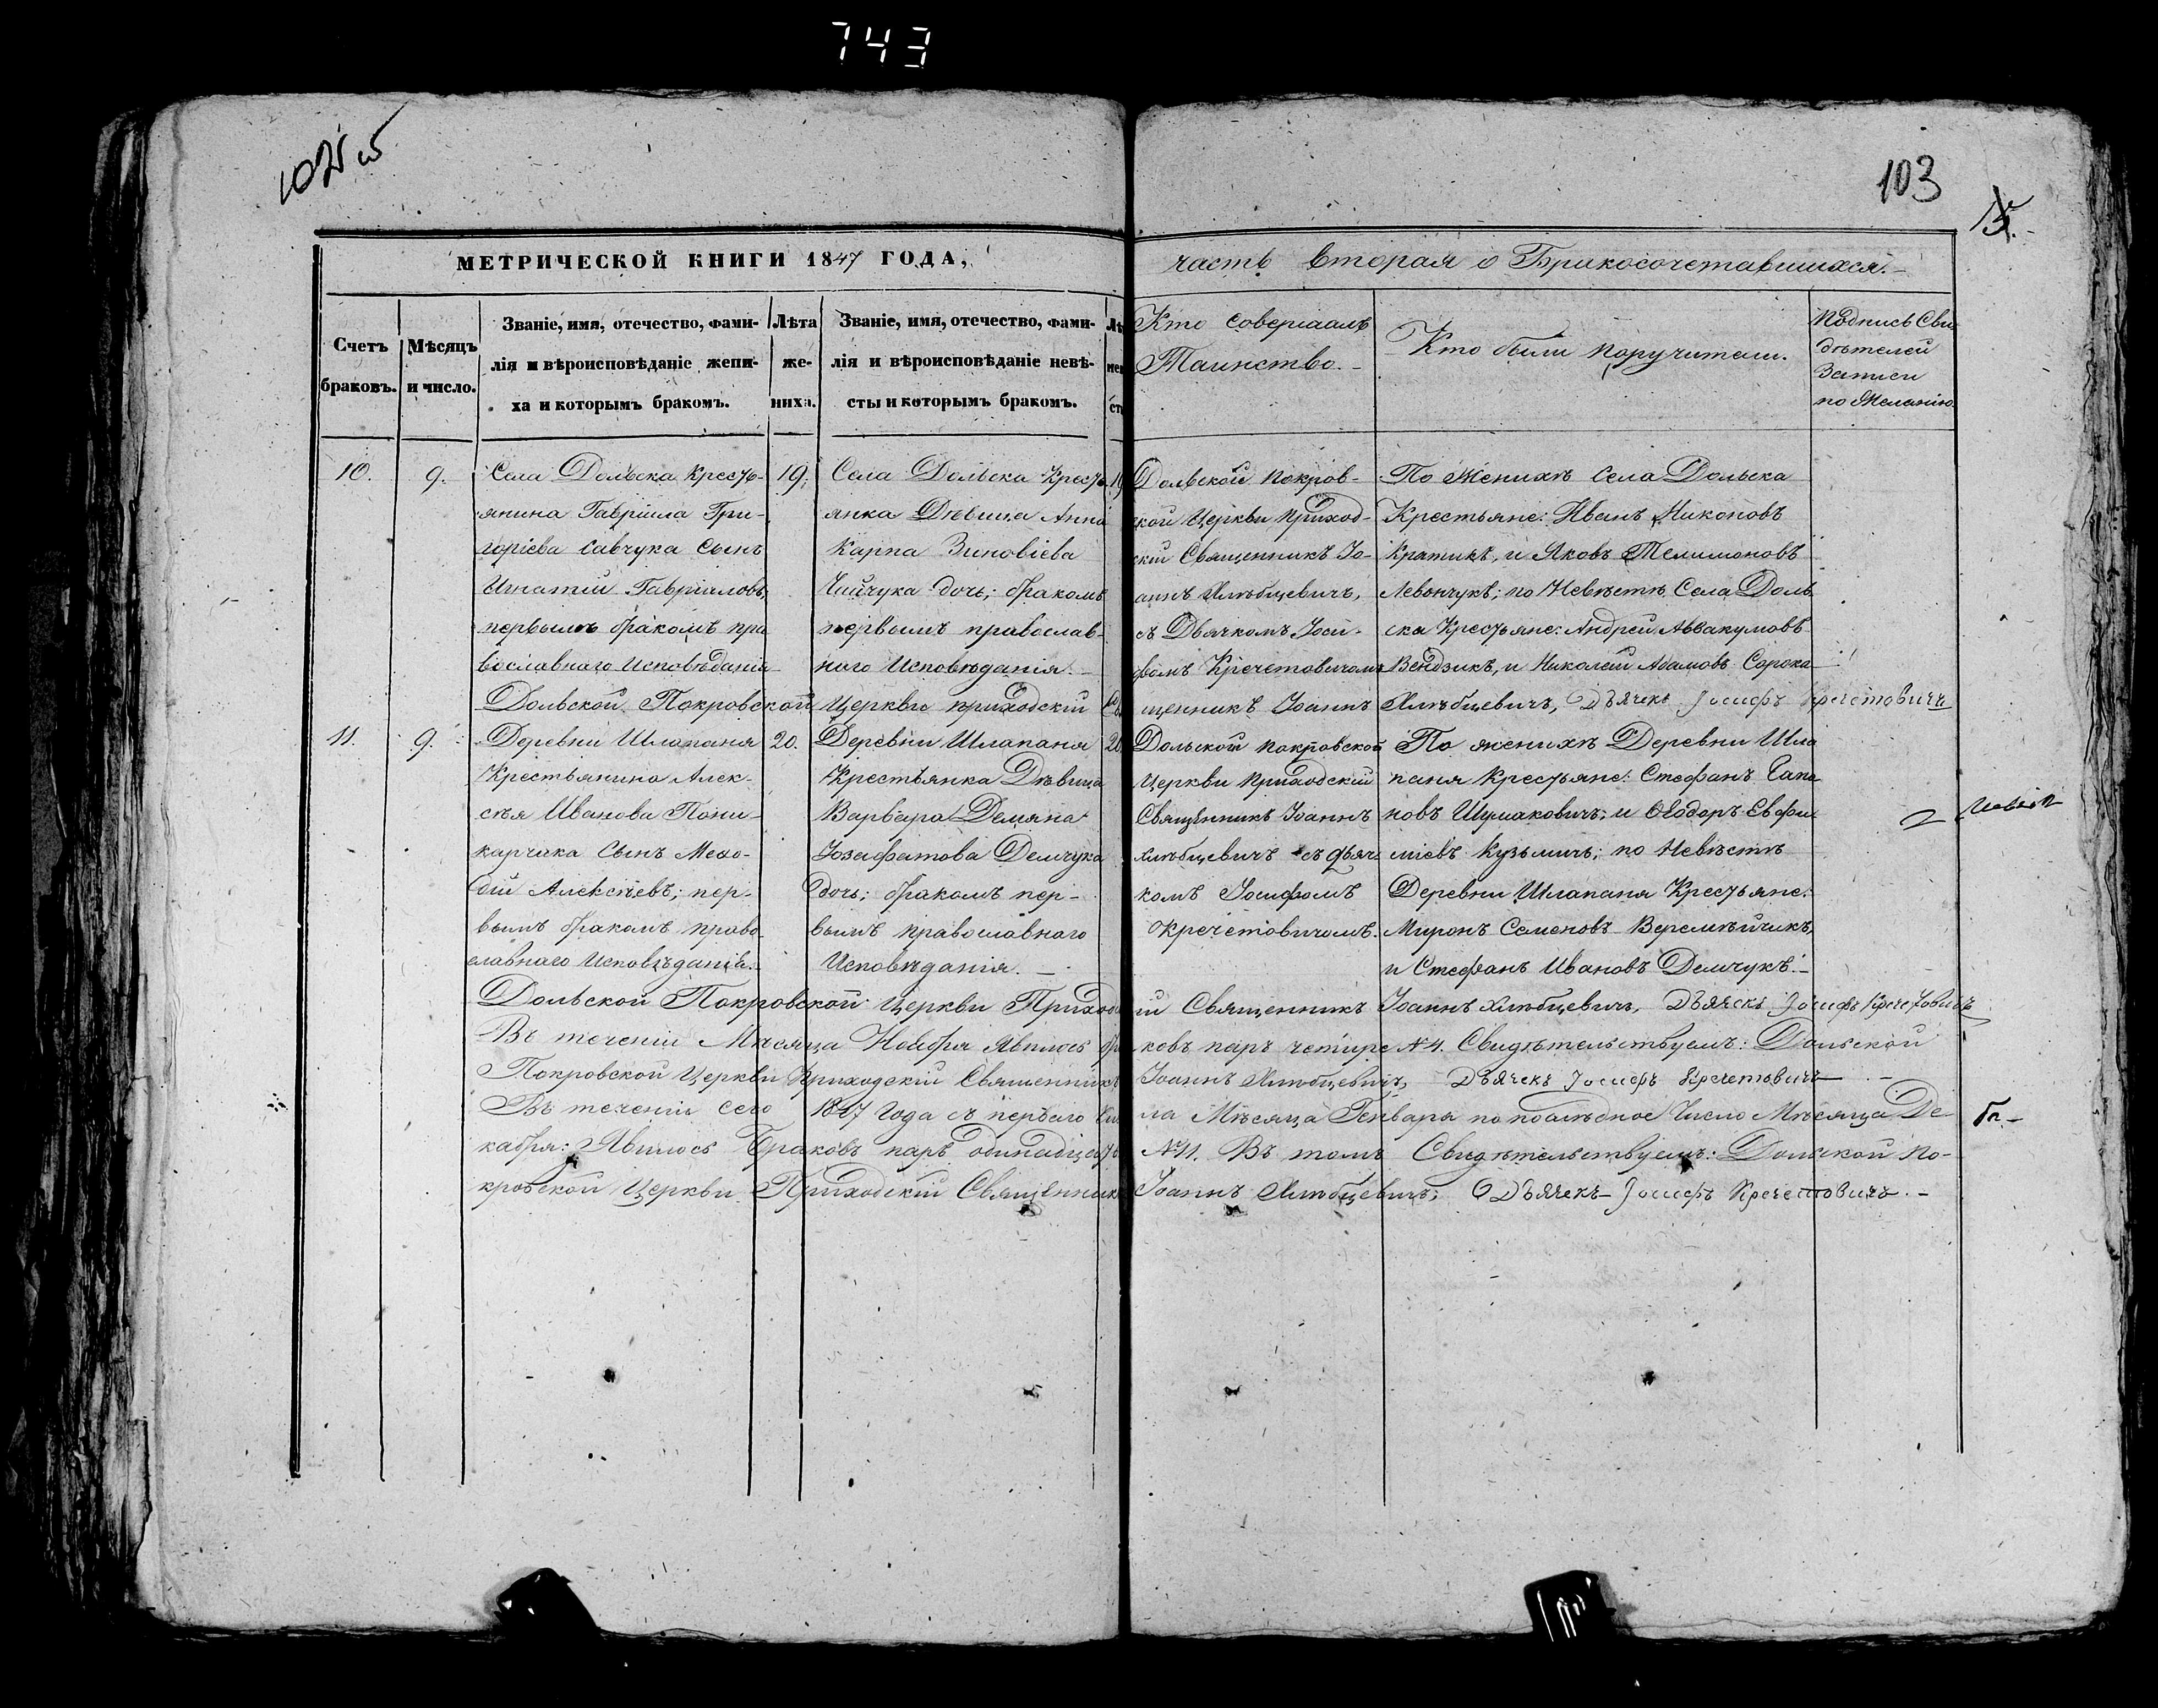 743
103
МЕТРИЧЕСКОЙ КНИГИ 1847 ГОДА,
часть вторая о Бракосочетавшихся.
Счетъ браковъ.
Мѣсяцъ и число.
Званіе, имя, отечество, фами-
лія и вѣроисповѣданіе жени-
ха и которымъ бракомъ.
Лѣта
же-
ниха.
Званіе, имя, отечество, фами-
лія и вѣроисповѣданіе невѣ-
сты и которымъ бракомъ.
Кто совершалъ
Таинство.
Кто были поручители.
Подпись Сви
дѣтелей
Записи
по Желанію.
10.
9.
Села Дольска Кресть-
янина Гавріила Гри-
горіева Савчука Сынъ
Игнатій Гавріиловъ,
первымъ бракомъ пра
вославнаго Исповѣданія
19.
Села Дольска Кресть
янка Дѣвица Анна
Карпа Зиновіева
Чайчука дочь; бракомъ
первымъ православ-
наго Исповѣданія.
19
Дольской Покров-
ской Церкви Приход-
скій Священникъ Іо-
аннъ Хлѣбцевичъ,
съ Дьячкомъ Іоси-
фомъ Кречетовичомъ
По Женихѣ Села Дольска
Крестьяне: Иванъ Никоновъ
Кратикъ, и Яковъ Телимоновъ
Левончукъ; по Невѣстѣ Села Доль
ска Крестьяне: Андрей Аввакумовъ
Вендзикъ, и Николай Адамовъ Сорока
Дольской Покровской Церкви приходскій Священникъ Іоаннъ Хлѣбцевичъ, Дьячекъ Іосифъ Кречетовичъ
11.
9.
Деревни Шлапаня
Крестьянина Алек-
сѣя Иванова Пони-
карчика Сынъ Мефо-
дій Алексѣевъ; пер-
вымъ бракомъ право-
славнаго Исповѣданія.
20.
Деревни Шлапаня
Крестьянка Дѣвица
Варвара Демяна
Іозафатова Демчука
дочь; бракомъ пер-
вымъ православнаго
Исповѣданія.
20
Дольской покровской
Церкви Приходскій
Священникъ Іоаннъ
Хлѣбцевичъ съ дьяч
комъ Іосифомъ
Кречетовичомъ.
По женихѣ Деревни Шла
паня Крестьяне: Стефанъ Гапо
новъ Шумаковичъ; и Ѳеодоръ Евфи
міевъ Кузьмичъ; по Невѣстѣ
Деревни Шлапаня Крестьяне:
Миронъ Семеновъ Веремѣйчикъ,
и Стефанъ Ивановъ Демчукъ.
Дольской Покровской Церкви Приходскій Священникъ Іоаннъ Хлѣбцевичъ, Дьячекъ Іосифъ Кречетовичъ
Въ теченіи Мѣсяца Ноября Явилось браковъ паръ четыре №4. Свидѣтельствуемъ: Дольской
Покровской Церкви Приходскій Священникъ Іоаннъ Хлѣбцевичъ, Дьячекъ Іосифъ Кречетовичъ
Въ теченіи сего 1847 Года съ перваго числа Мѣсяца Генваря по послѣдное Число Мѣсяца Де
кабря: Явилось Браковъ паръ одинадцать №11. Въ томъ Свидѣтельствуемъ: Дольской По-
кровской Церкви Приходскій Священникъ Іоаннъ Хлѣбцевичъ; Дьячекъ Іосифъ Кречетовичъ.